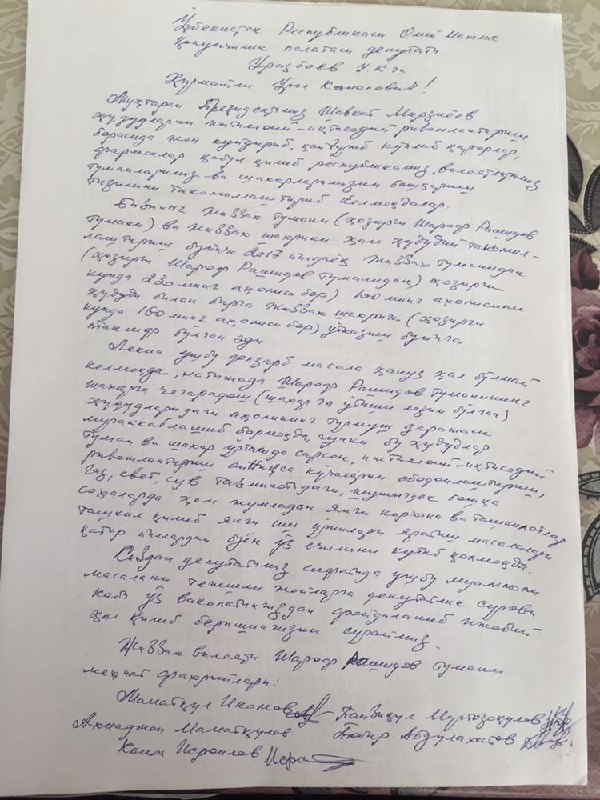 Ўзбекистон Республикаси Олий Мажлис
қонунчилик палатаси депутати
Уразбоев У.К га
Ҳурматли Улуғ Камолович!
Муҳтарам Президентимиз Шавкат Мирзиёев
ҳудудларни ижтимоий-иқтисодий ривожлантириш
борасида жон куйдириб, қайғуриб кўплаб қарорлар,
фармонлар қабул қилиб республикамиз, вилоятимиз,
туманларимиз ва шаҳарларимизни бошқариш
тизимини такомиллаштириб келмоқдалар.
Бизнинг Жиззах тумани (ҳозирги Шароф Рашидов
тумани) ва Жиззах шаҳрини ҳам ҳудудий такомил-
лаштириш бўйича 2017 йилдаёқ Жиззах туманидан
(ҳозирги Шароф Рашидов туманидан) (ҳозирги
кунда 230 минг аҳоли бор) 100 минг аҳолисини
ҳудуди билан бирга Жиззах шаҳрига (ҳозирги
кунда 180 минг аҳоли бор) ўтказиш бўйича
таклиф бўлган эди
Лекин ушбу долзарб масала ҳануз ҳал бўлмай
келмоқда, натижада Шароф Рашидов туманининг
шаҳарга чегарадош (шаҳарга ўтиши лозим бўлган)
ҳудудларидаги аҳолининг турмуш даражаси
мураккаблашиб бормоқда, чунки бу ҳудудлар
туман ва шаҳар ўртасида сарсон, ижтимоий-иқтисодий
ривожлантириш айниқса кўчаларни ободонлаштириш,
газ, свет, сув таъминотидаги, шунингдек бошқа
соҳаларда ҳам жумладан янги корхона ва ташкилотлар
ташкил қилиб янги иш ўринлари яратиш масалалари
қатор йиллардан буён ўз ечимини кутиб қолмоқда.
Сиздан депутатимиз сифатида ушбу муаммоли
масалани тегишли жойларга депутатлик сўрови
каби ўз ваколатингиздан фойдаланиб ижобий
ҳал қилиб беришингизни сўраймиз.
Жиззах вилояти Шароф Рашидов тумани
меҳнат фахрийлари:
Маматқул Исломов Панжиқул Муртозоқулов
Аҳмаджон Маматқулов Абдулахатов
Камол Исроилов